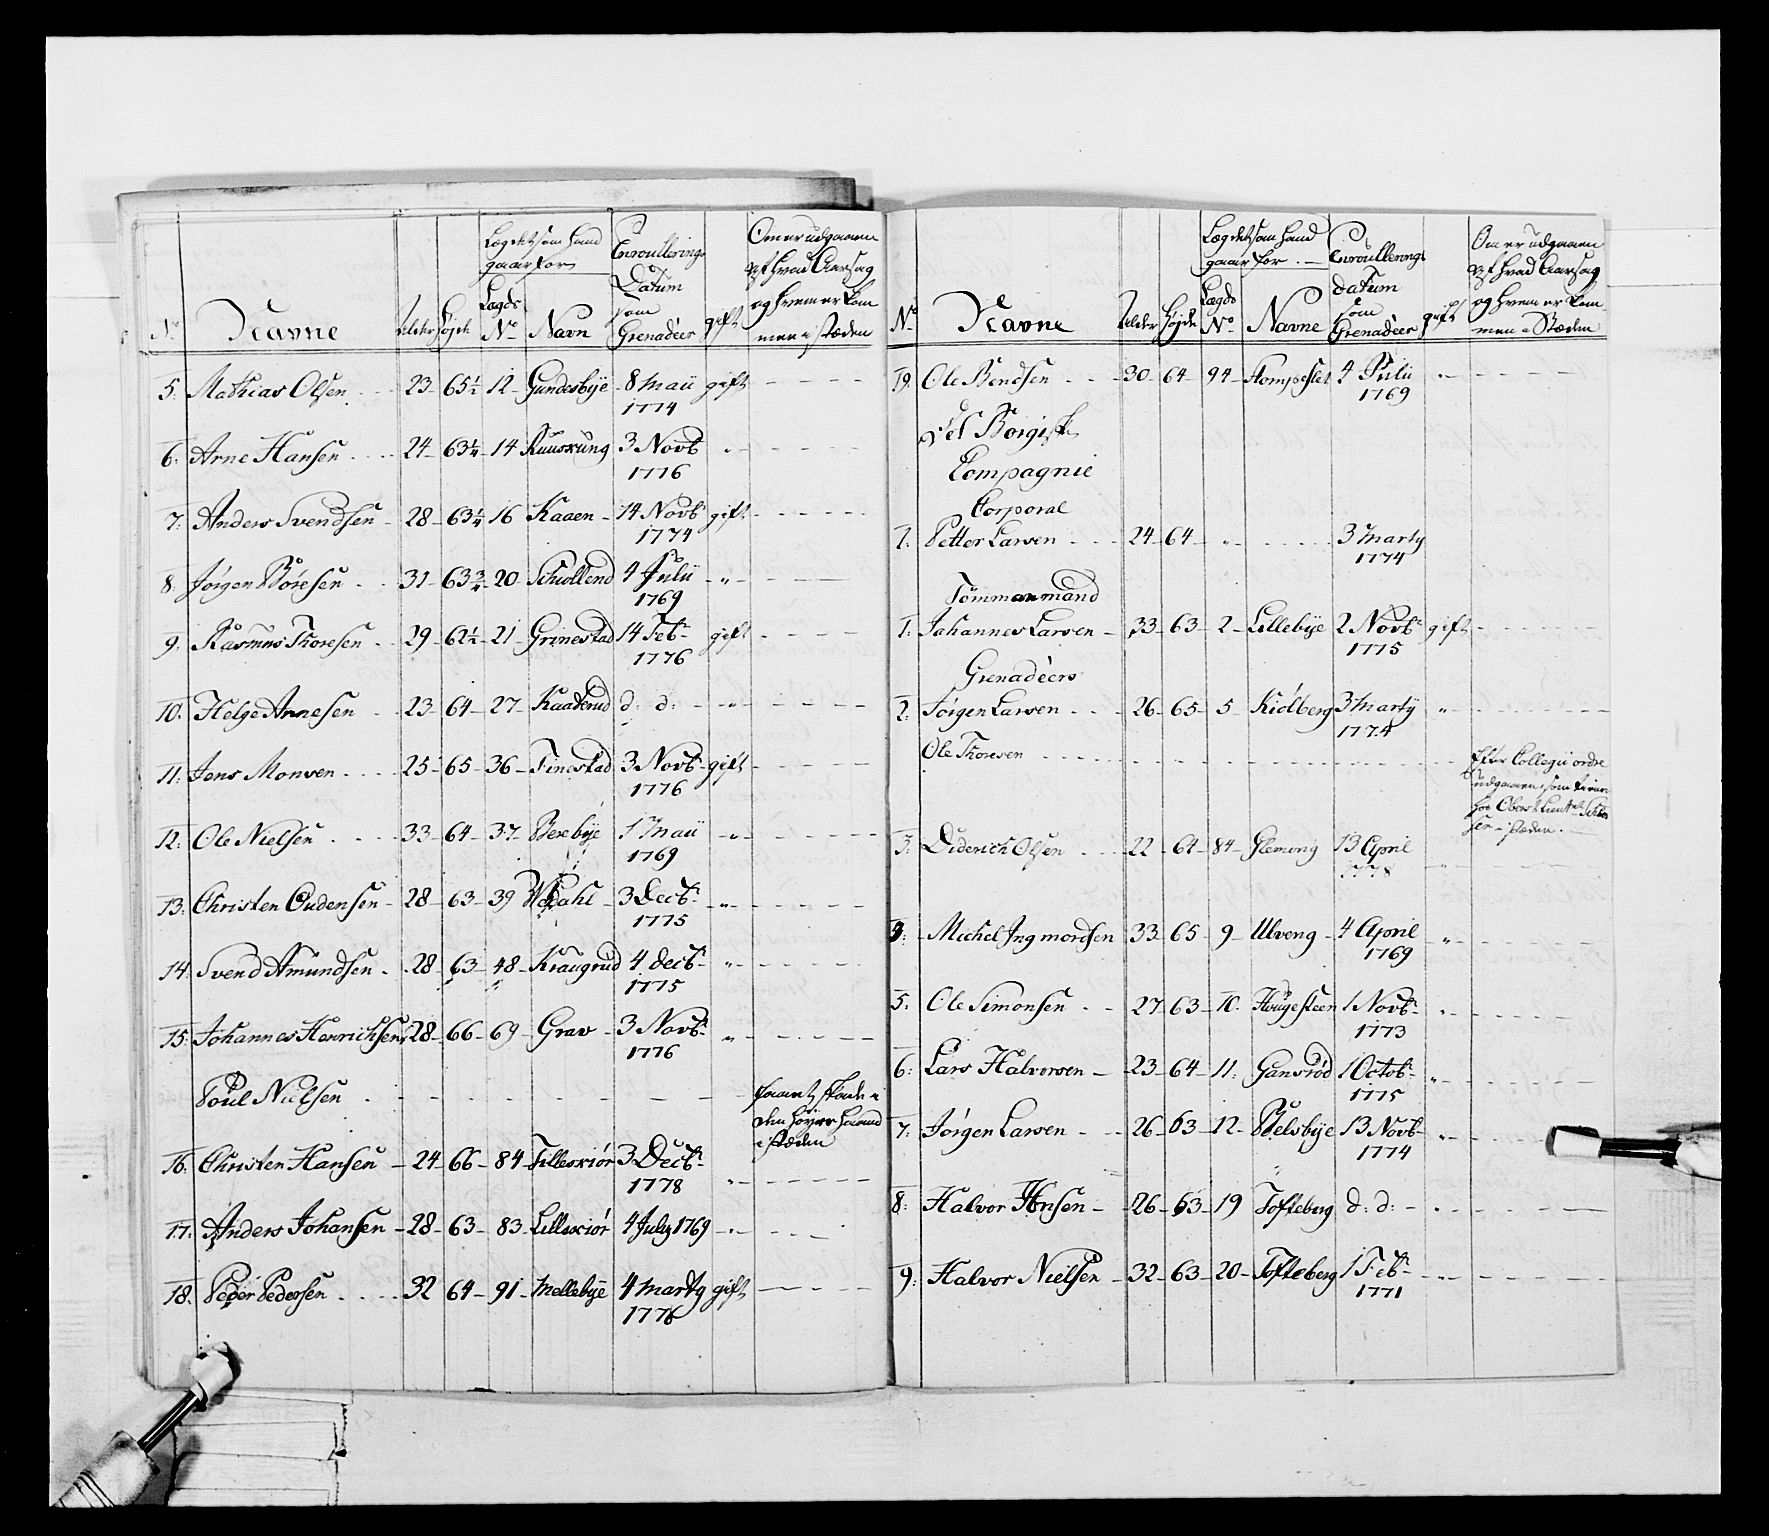 No Navne Alder Højde Lægdet som hand gaar for Lægds No Navn Enroullerings Datum som Grenadéer gift Om er udgaaen af hvad Aarsag og hvem er kommen i stæden
5. Mathias Olsen 23 65½ 12 Gundesbÿe 8 Maii 1774 gift
6. Arne Hansen 24 63¼ 14 3 Novb 1776 "
7. Anders Svendsen 28 63¼ 16 Kaaen 14 Novbr 1774 gift
8. Jørgen Børesen 31 63¾ 20 4 Julii 1769 "
9. Rasmus Thoresen 29 62½ 21 Grinestad 14 Febr 1776 gift
10. Helge Arnesen 23 64 27 Kaaterud d: d: "
11. Jens Monsen 25 65 36 Finestad 3 Novbr 1776 gift
12. Ole Nielsen 33 64 37 Berebÿe 1 Maii 1769 "
13. Christen Gudensen 28 63 39 Dahl 3 Decbr 1775 "
14. Svend Amundsen 28 63 48 Kraugrud 4 Decbr 1775 "
15. Johannes Henrichsen 28 66 69 Grav 3 Novbr 1776 "
Poul Nielsen faaet skade i den høyre haand i stæden
16. Christen Hansen 24 66 84 Lillesxiør 3 Decbr 1778 "
17. Anders Johansen 28 63 83 Lillesxiør 4 July 1769 "
18. Peder Pedersen 32 64 91 Mellebÿe 4 Marty 1776 gift
No Navne Alder Højde Lægdet som hand gaar for Lægds No Navne Enroullerings datum som Grenadéer gift Om er udgaaen af hvad Aarsag og hvem er kommen i Stæden
19. Ole Bendsen 30 64 94 4 Julii 1769 "
Det Borgiske
Compagnie
Corporal
1. Petter Larsen 24 64 " 3 Marty 1774
Tömmermand
1. Johannes Larsen 33 63 2 Lillebÿe 2 Novbr 1775 gift
Grenadéers
2. Jørgen Larsen 26 65 5 Kiølberg 3 Marty 1774 "
Ole Thoresen Efter Collegii ordre udgaaen som tiener hos Oberst Lieut. i stæden.
3. Diderich Olsen 22 64 84 Gleming 13 April 1778 "
4. Michel Ingmordsen 33 65 9 Ulveng 4 April 1769 "
5. Ole Simonsen 27 63 10. Haugesteen 1 Novbr 1773 "
6. Lars Halvorsen 23 64 11. Gansrød 1 Octobr 1775 "
7. Jørgen Larsen 26 63 12 Velsbÿe 13 Novbr 1774 "
8. Halvor Hansen 26 63 19 Tofteberg d: d: "
9. Halvor Nielsen 32 63 20 Tofteberg 1 Febr 1771 "